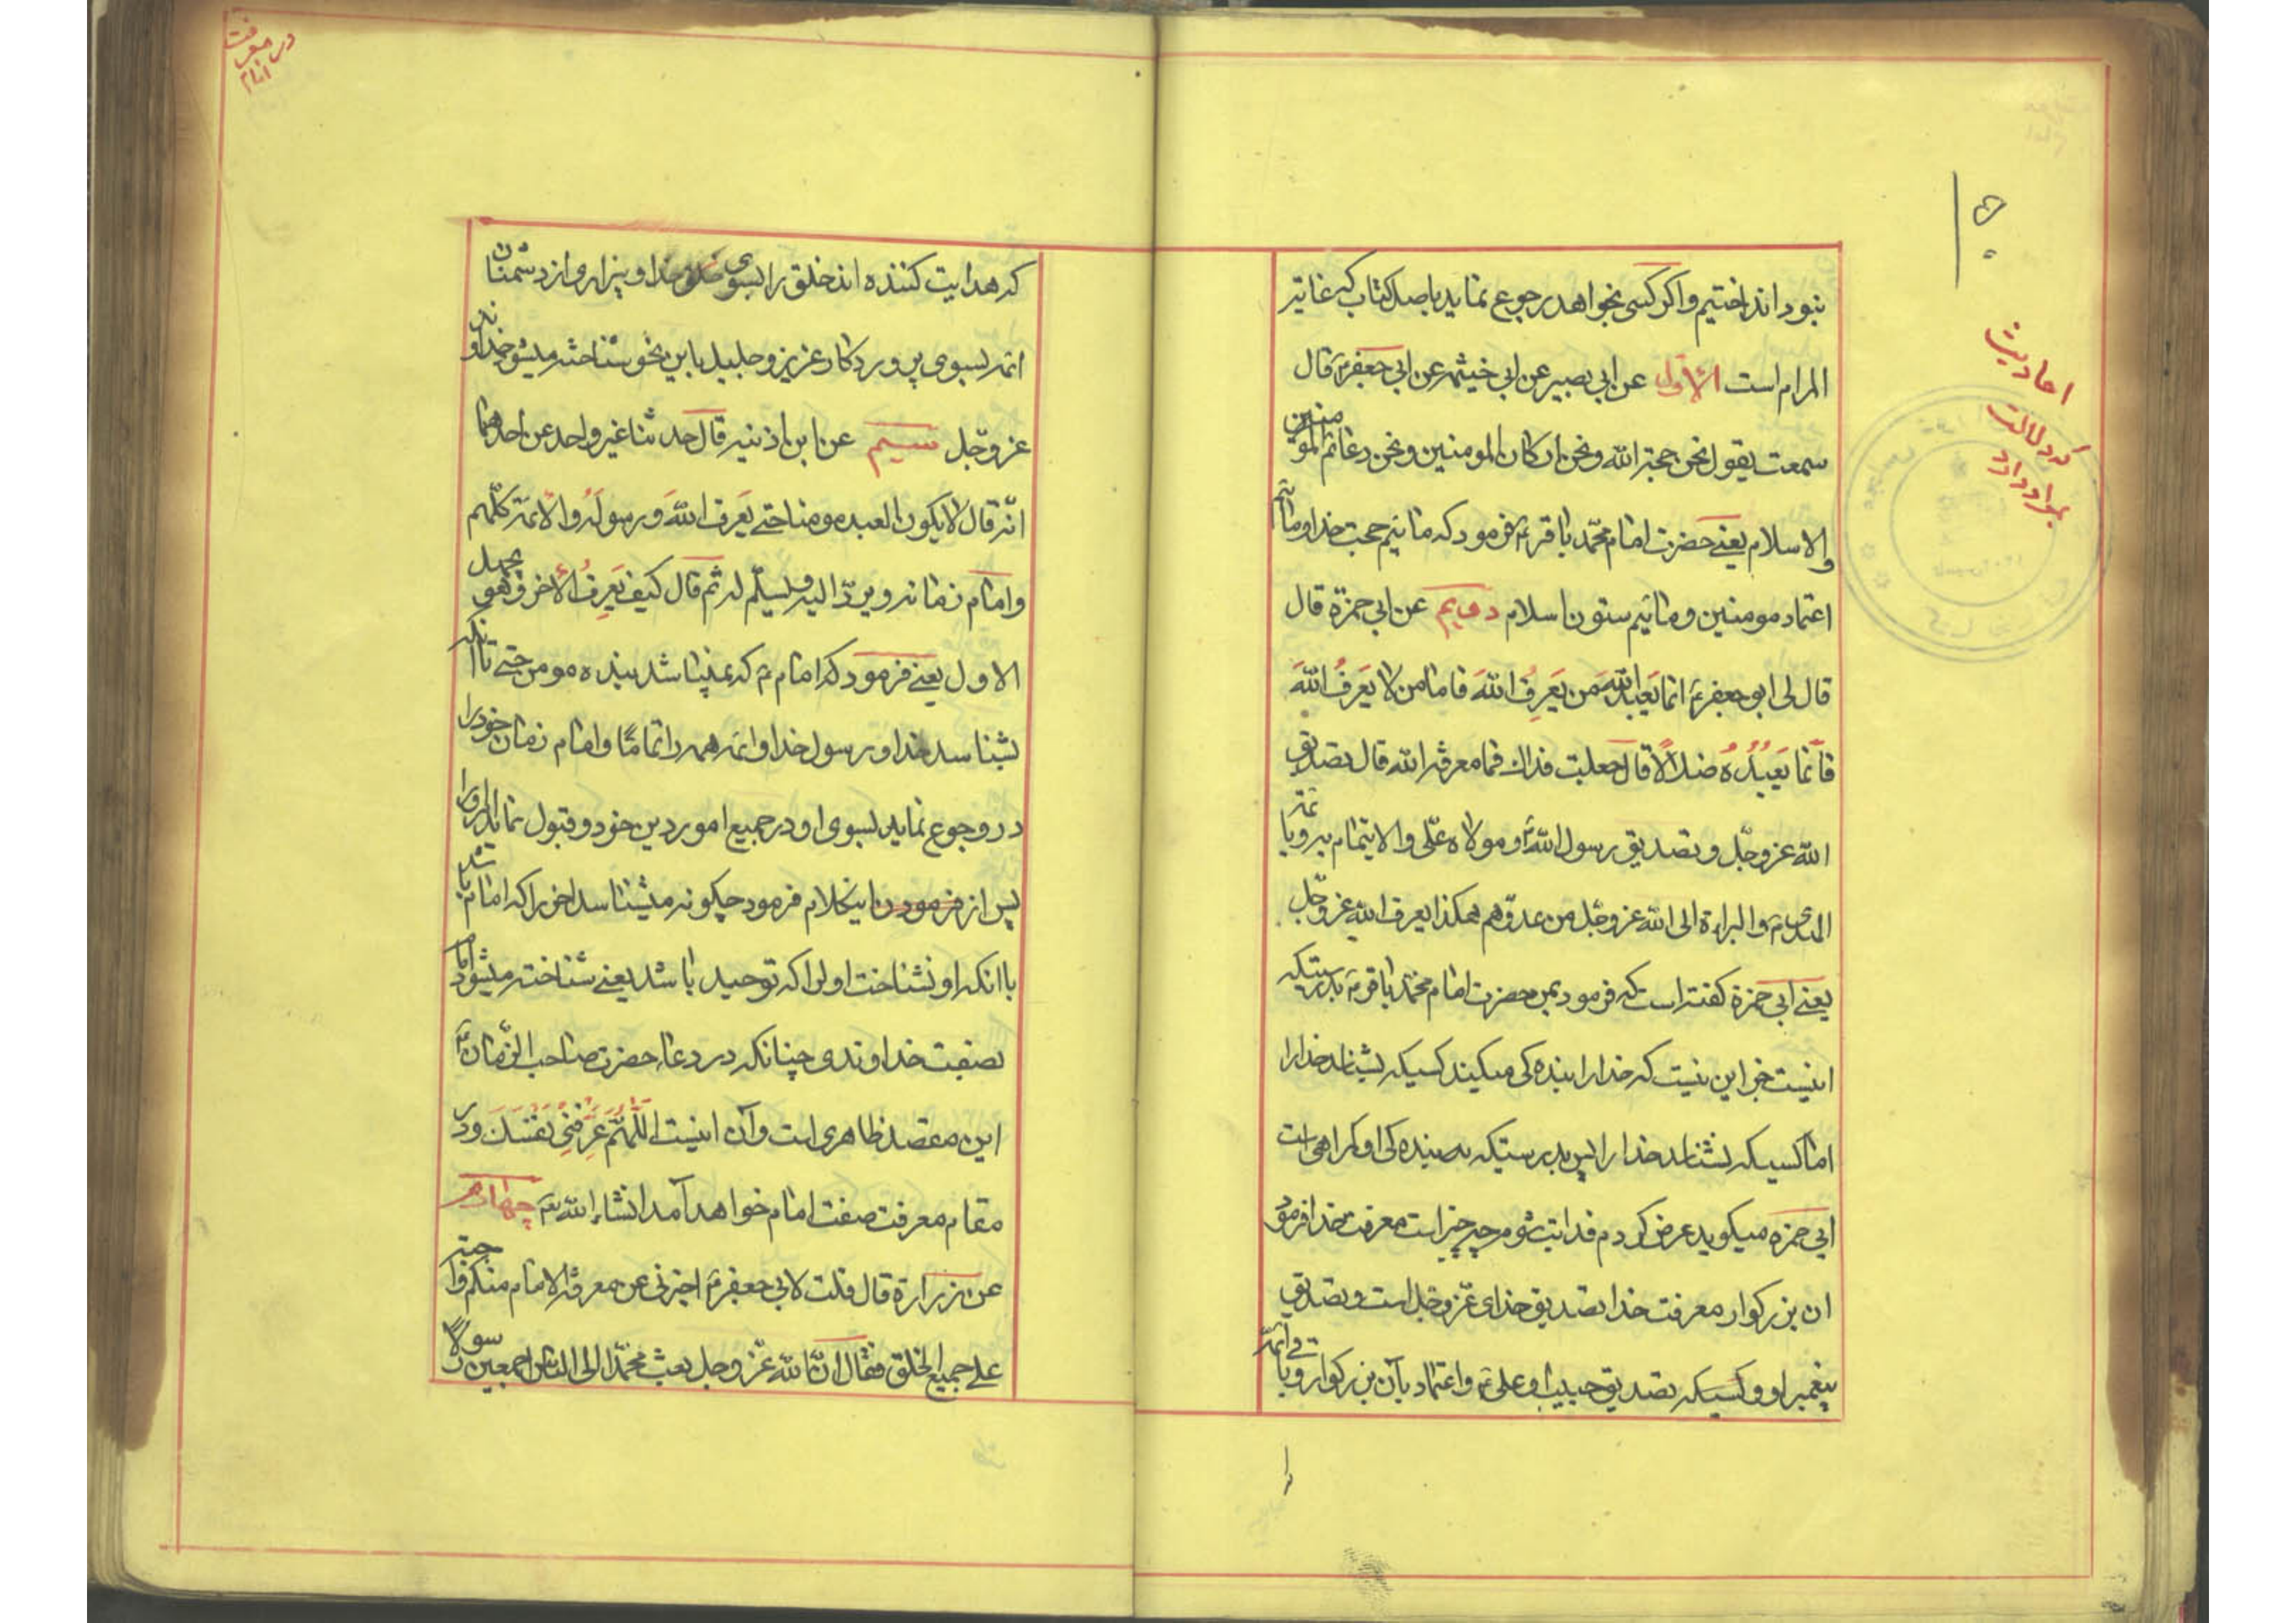 احادیث
که دلالت
بر او دارد
نبود انداختیم و اگر کسی بخواهد رجوع نماید باصل کتاب که غایة
المرام است الاول عن ابی بصیر عن ابی خیثمه عن ابی جعفر ع قال
سمعت یقول نحن حجة الله و نحن ارکان المومنین و نحن دعائم المومنین
والاسلام یعنے حضرت امام محمد باقر ع فرمود که مائیم حجت خدا و مائیم
اعتماد مومنین و مائیم ستون اسلام دویم عن ابی حمزة قال
قال لی ابو جعفر ع انما یَعبد اللهَ من یَعرِفُ اللهَ فاما من لا یَعرَفُ اللهَ
فاَنّما یَعبُدُهُ ضلالًا قال جعلت فداك فما معرفة الله قال تصدیق
الله عز وجّل و تصدیق رسول الله و موالاه علّی والایتمام به و بائمة
الهدی ع والبراءة الی الله عز وجّل من عدوّهم هکذا یعرف الله عز وجّل
یعنے ابی حمزة کفته است که فرمود بمن حضرت امام محمد باقر ع بدرستیکه
اینست جز این نیست که خدا را بنده کی میکند کسیکه بشناسد خدا را
اما کسیکه نشناسد خدا را پس بدرستیکه بنده کی او کمراهی است
ابی حمزه میکوید عرض کردم فدایت شوم چه چیز است معرفت خدا فرمود
ان بزرکوار معرفت خدا تصدیق خدای عّز و جّل است و تصدیق
پیغمبر او و کسیکه تصدیق حبیب او علی ع و اعتماد بآن بزرکوار و بائمه
در معرفت
امام
که هدایت کننده اند خلق را بسوی خدا و بیزاری از دشمنان
ائمه بسوی پروردکار عزیز و جلیل باین نحو شناخته میشود خداوند
عز وجّل سیم عن ابن اذنیه قال حدثنا غیر واحد عن احدهما
انّه قال لا یکون العبد مومنا حتے یَعرف اللهَ وَ رسولَهُ والائمة کلّهم
و امام زمانه و یردّ الیه و یسلّم له ثم قال کیف یَعرِفُ الأخر و هو یجهل
الاول یعنے فرمود که امام ع که نمیباشد بنده مومن حتے تا آنکه
بشناسد خدا و رسول خدا و ائمه همه را تمامًا و امام زمان خود را
و رجوع نماید بسوی او در جمیع امور دین خود و قبول نماید امر او را
پس از فرمودن اینکلام فرمود چکونه میشناسد اخر را که امام باشد
با انکه او نشناخت اول را که توحید باشد یعنے شناخته میشود امام
بصفت خداوندی چنانکه در دعاء حضرت صاحب الزمان ع
این مقصد ظاهری است و آن اینست اللّهُمَّ عَرِّفْنِی نَفْسَكَ و در
مقام معرفت صفت امام خواهد آمد انشاء الله تعَ چهارم
عن زرارة قال قلت لابی جعفر ع اخبرنی عن معرفة الامام منکم واجبة
علے جمیع الخلق فقال انّ الله عّز وجل بعث محّمدًا الی الناس اجمعین رسولا